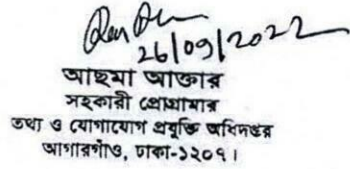 26/09/2022
আছমা আক্তার
সহকারী প্রোগ্রামার
তথ্য ও যোগাযোগ প্রযুক্তি অধিদপ্তর
আগারগাঁও, ঢাকা-১২০৭।